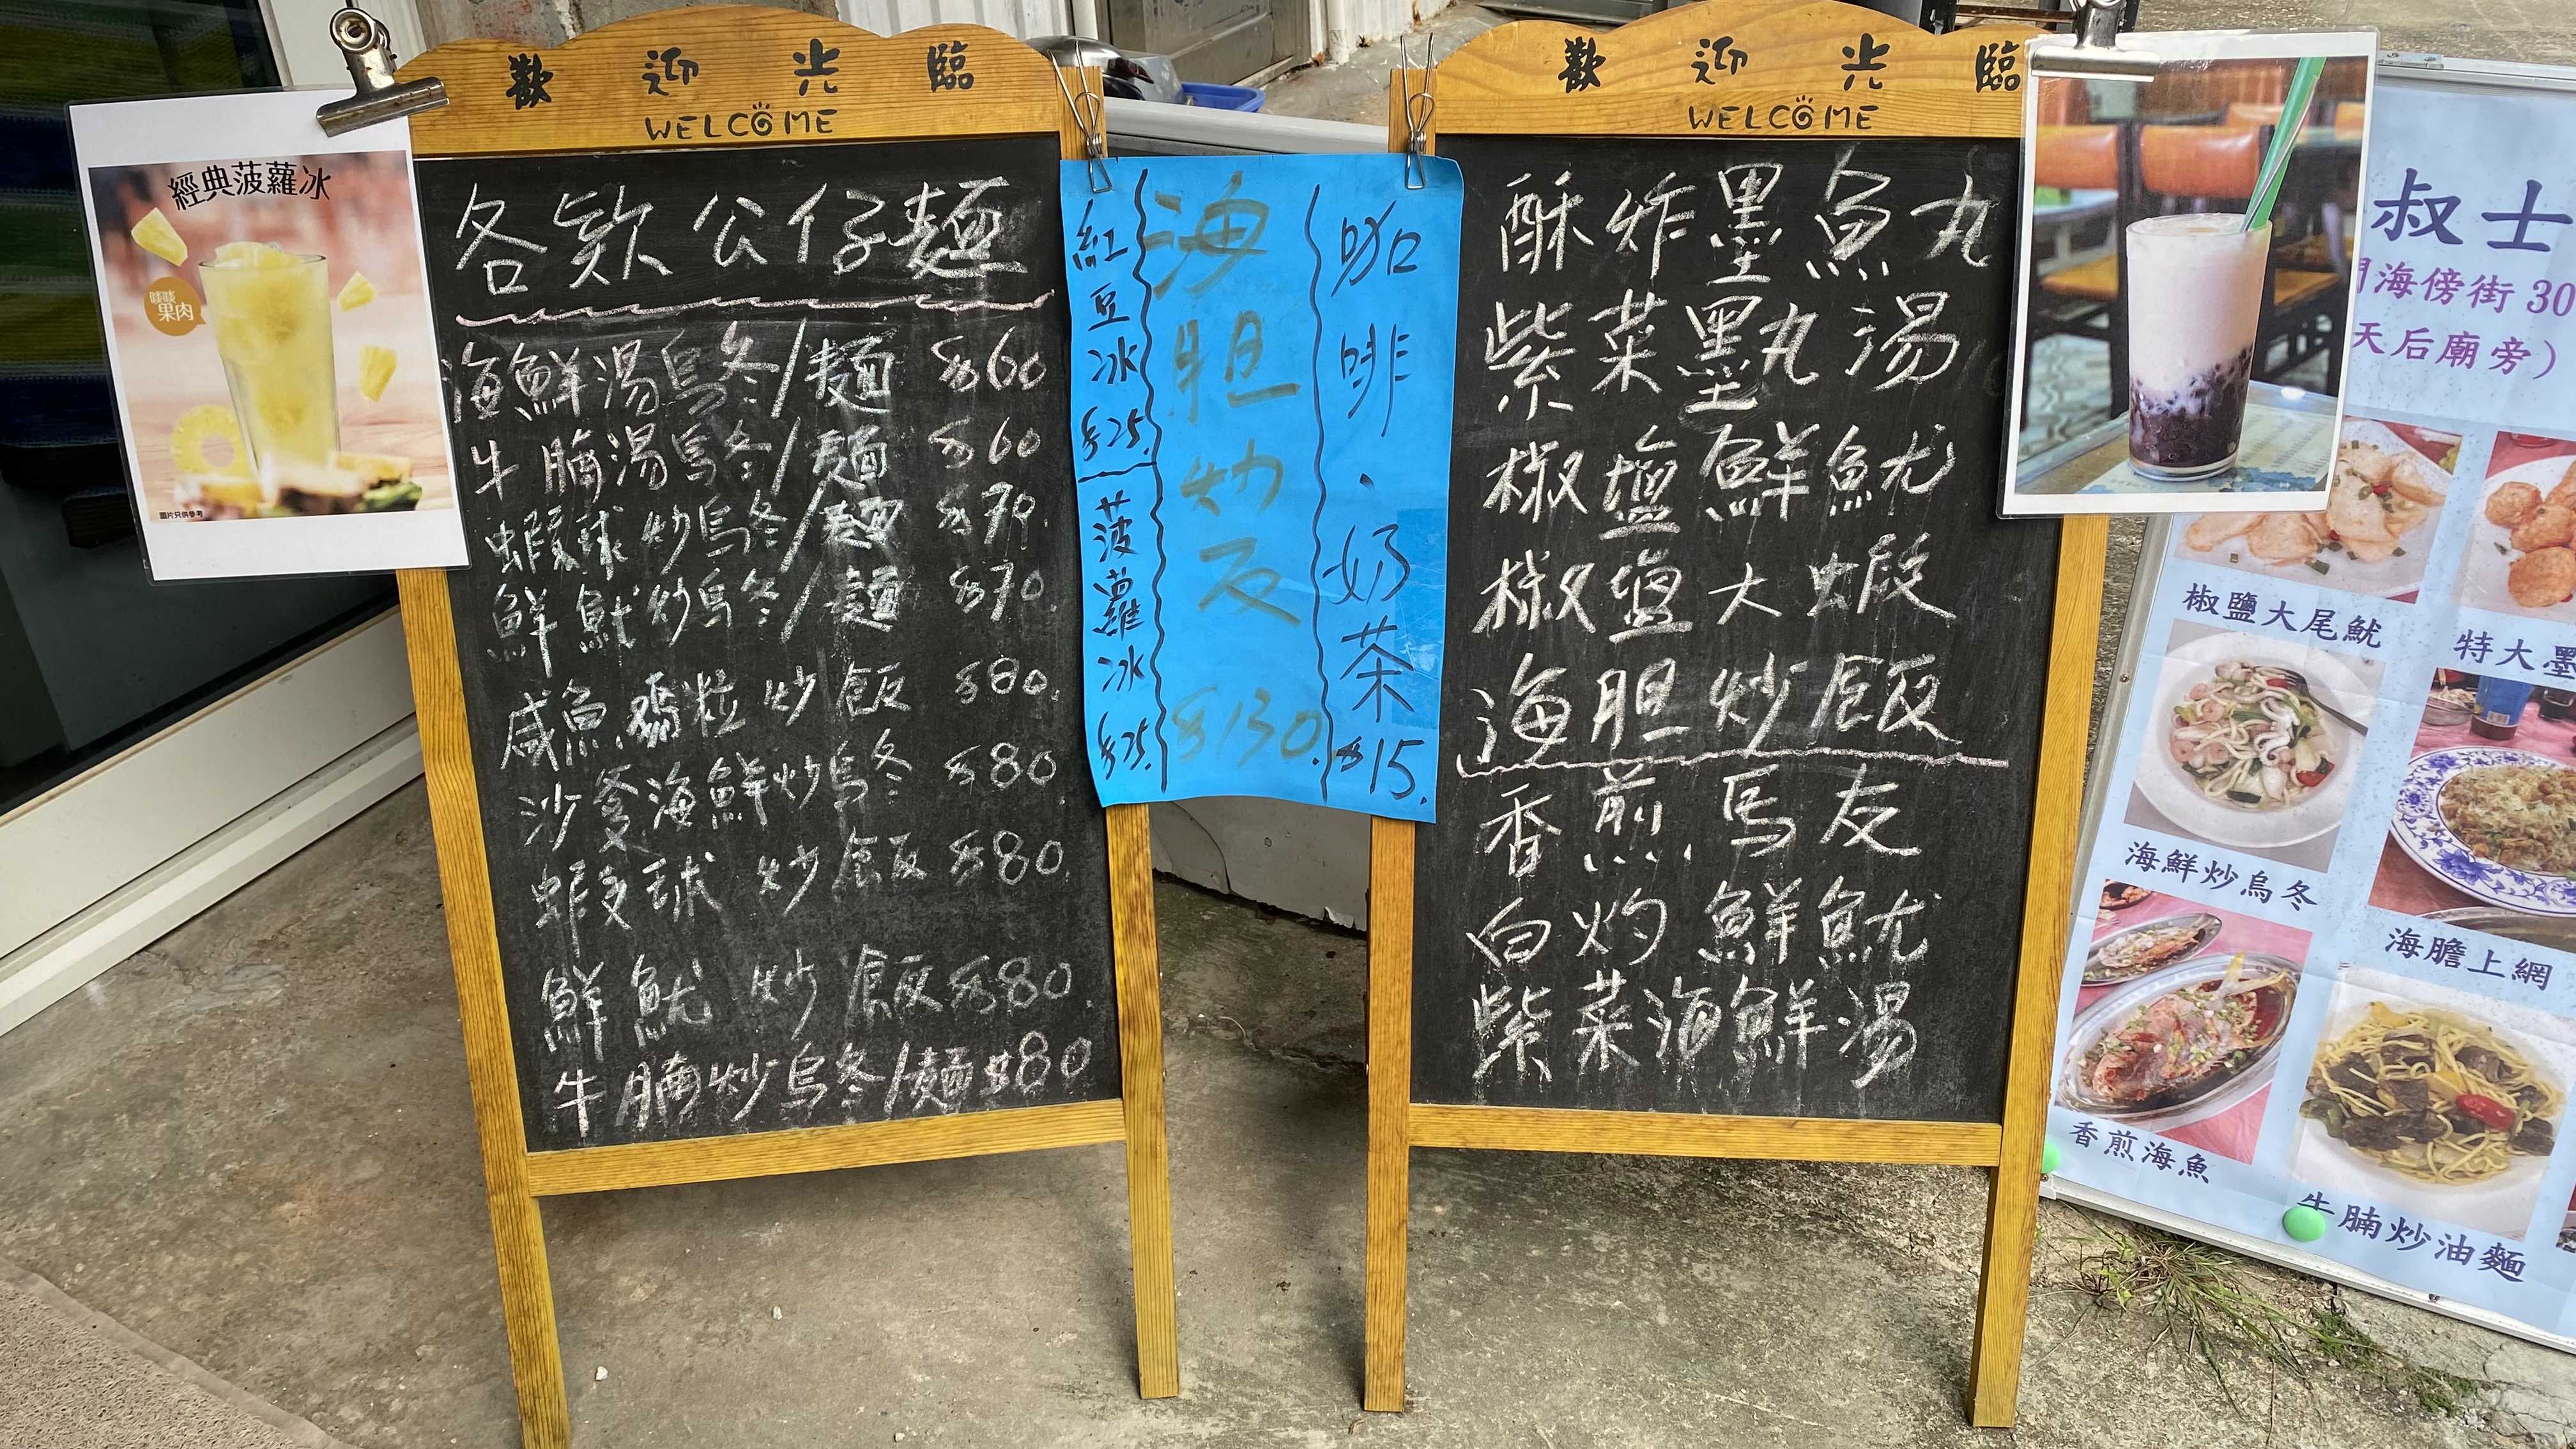 經典菠蘿冰
啖啖
果肉
圖片只供參考
歡迎光臨
WELCOME
各款公仔麵
海鮮湯烏冬/麵 $60
牛腩湯烏冬/麵 $60
蝦球炒烏冬/麵 $70.
鮮魷炒烏冬/麵 $70.
咸魚鷄粒炒飯 $80.
沙爹海鮮炒烏冬 $80
蝦球炒飯 $80.
鮮魷炒飯 $80.
牛腩炒烏冬/麵 $80
紅豆冰 $25.
菠蘿冰 $25.
海胆炒反 $130.
咖啡.奶茶 $15.
歡迎光臨
WELCOME
酥炸墨魚丸
紫菜墨丸湯
椒鹽鮮魷
椒鹽大蝦
海胆炒飯
香煎馬友
白灼鮮魷
紫菜海鮮湯
叔士
海傍街 30
天后廟旁)
椒鹽大尾魷
特大墨
海鮮炒烏冬
海膽上網
香煎海魚
牛腩炒油麵